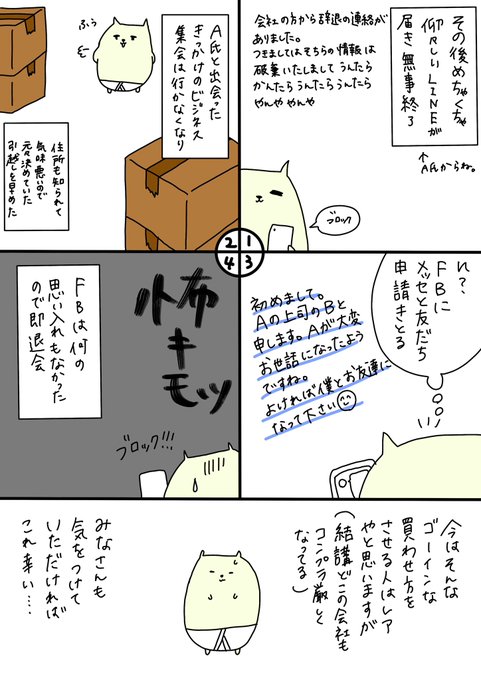 その後めちゃくちゃ
仰々しいLINEが
届き無事終了
↑
A氏からね。
会社の方から辞退の連絡が
ありました。
つきましてはそちらの情報は
破棄いたしまして うんたら
かんたら うんたら うんたら
やんや やんや
ブロック
1
2
3
4
A氏と出会った
きっかけのビジネス
集会は行かなくなり
ふぅ
住所も知られて
気味悪いので
元々決めていた
引越しを早めた
ん?
FBに
メッセと友だち
申請きとる
初めまして。
Aの上司のBと
申します。Aが大変
お世話になったよう
ですね。
よければ僕とお友達に
なって下さい
怖
キモッ
FBは何の
思い入れもなかった
ので即退会
ブロック!!!
今はそんな
ゴーインな
買わせ方を
させる人はレア
やと思いますが
(結講どこの会社も
コンプラ厳しく
なってる)
みなさんも
気をつけて
いただければ
これ幸い....